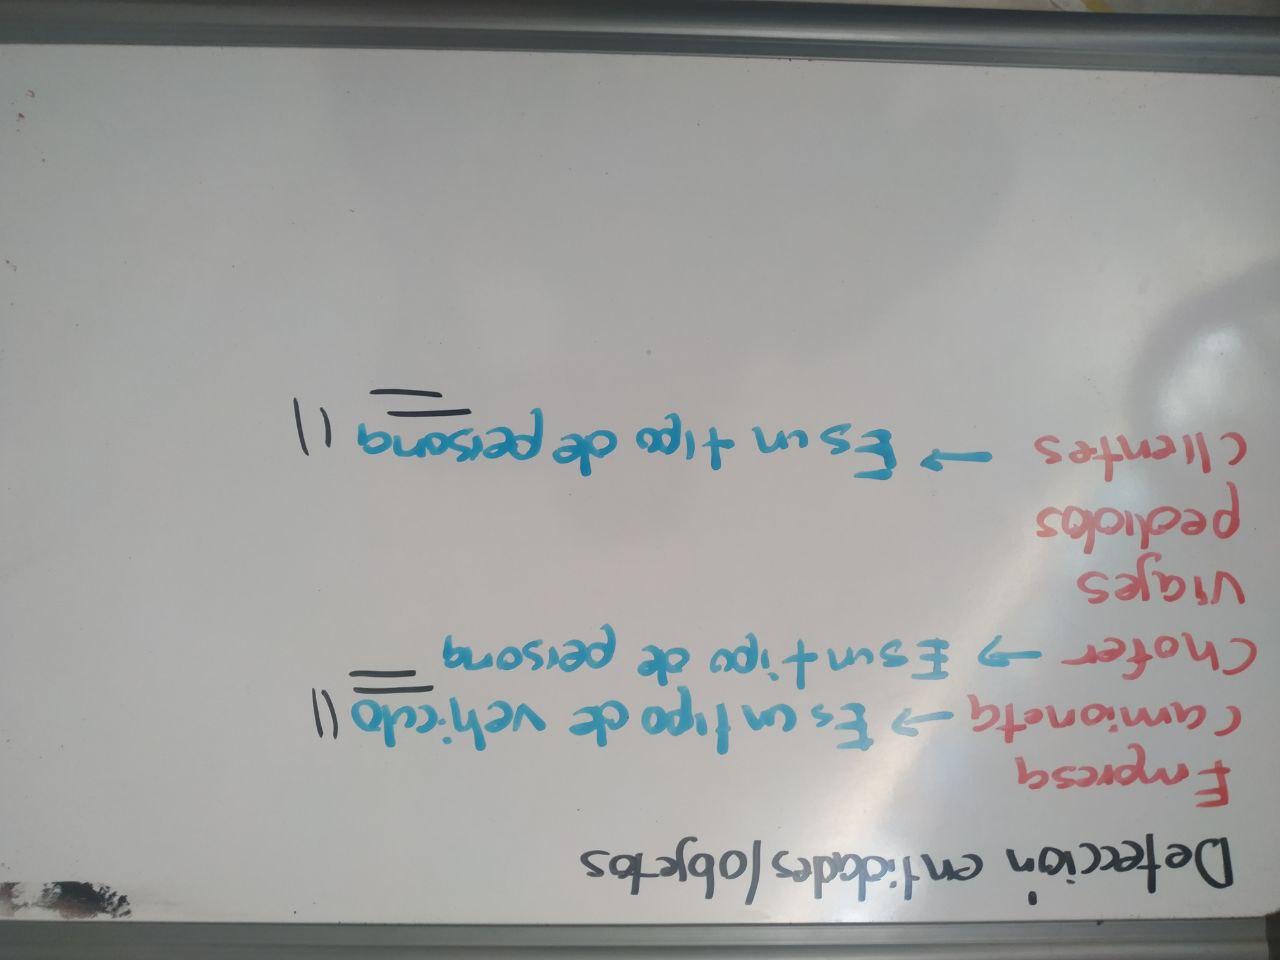 Detección entidades/objetos
Empresa
Camioneta → Es un tipo de vehículo //
Chofer → Es un tipo de persona
Viajes
pedidos
Clientes → Es un tipo de persona //